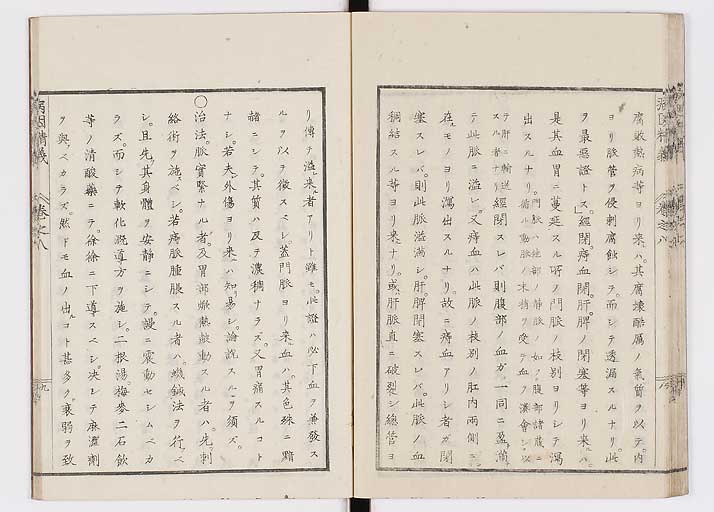 腐敗熱病等ヨリ来ハ其腐壊酷厲ノ氣質ヲ以テ内
ヨリ脉管ヲ侵刺腐蝕シテ而シテ透漏スルナリ此
ヲ最惡證トス經閉痔血閉肝脾ノ閉塞等ヨリ来ハ
是其血胃ニ蔓延スル所ノ門脉ノ枝別ヨリシテ漏
出スルナリ
テ肝ニ輸送スル者ナリ經閉スレバ則腹部ノ血ガ一同ニ盈滿
テ此脉ニ溢レ又痔血ハ此脉ノ枝別ノ肛内兩側ニ
在モノヨリ漏出スルナリ故ニ痔血アリシ者ガ閉
塞スレバ則此脉溢滿シ肝脾閉塞スレバ此脉ノ血
稠結スル等ヨリ来ナリ或肝脉直ニ破裂シ總管ヨ
リ傳テ溢来者アリト雖モ此證ハ必下血ヲ兼發ス
ルヲ以テ徴スベシ蓋門脉ヨリ来血ハ其色殊ニ黯
赭ニシテ其質ハ及テ濃稠ナラズ又胃痛スルコト
ナシ若夫外傷ヨリ来ハ知易シ論説スルヲ須ズ
○治法脉實緊ナル者及胃部焮熱衝動スル者ハ先刺
絡術ヲ施ベシ若痔脉腫脹スル者ハ蜞鍼法ヲ行ベ
シ且先其身體ヲ安靜ニシテ謾ニ震動セシムベカ
ラズ而シテ軟化溉導方ヲ施シ二根湯梅麥二石飲
等ノ清酸藥ニテ徐徐ニ下導スベシ决シテ麻澁劑
ヲ與ベカラズ然ドモ血ノ出コト甚多ク衰弱ヲ致
卷之八
九